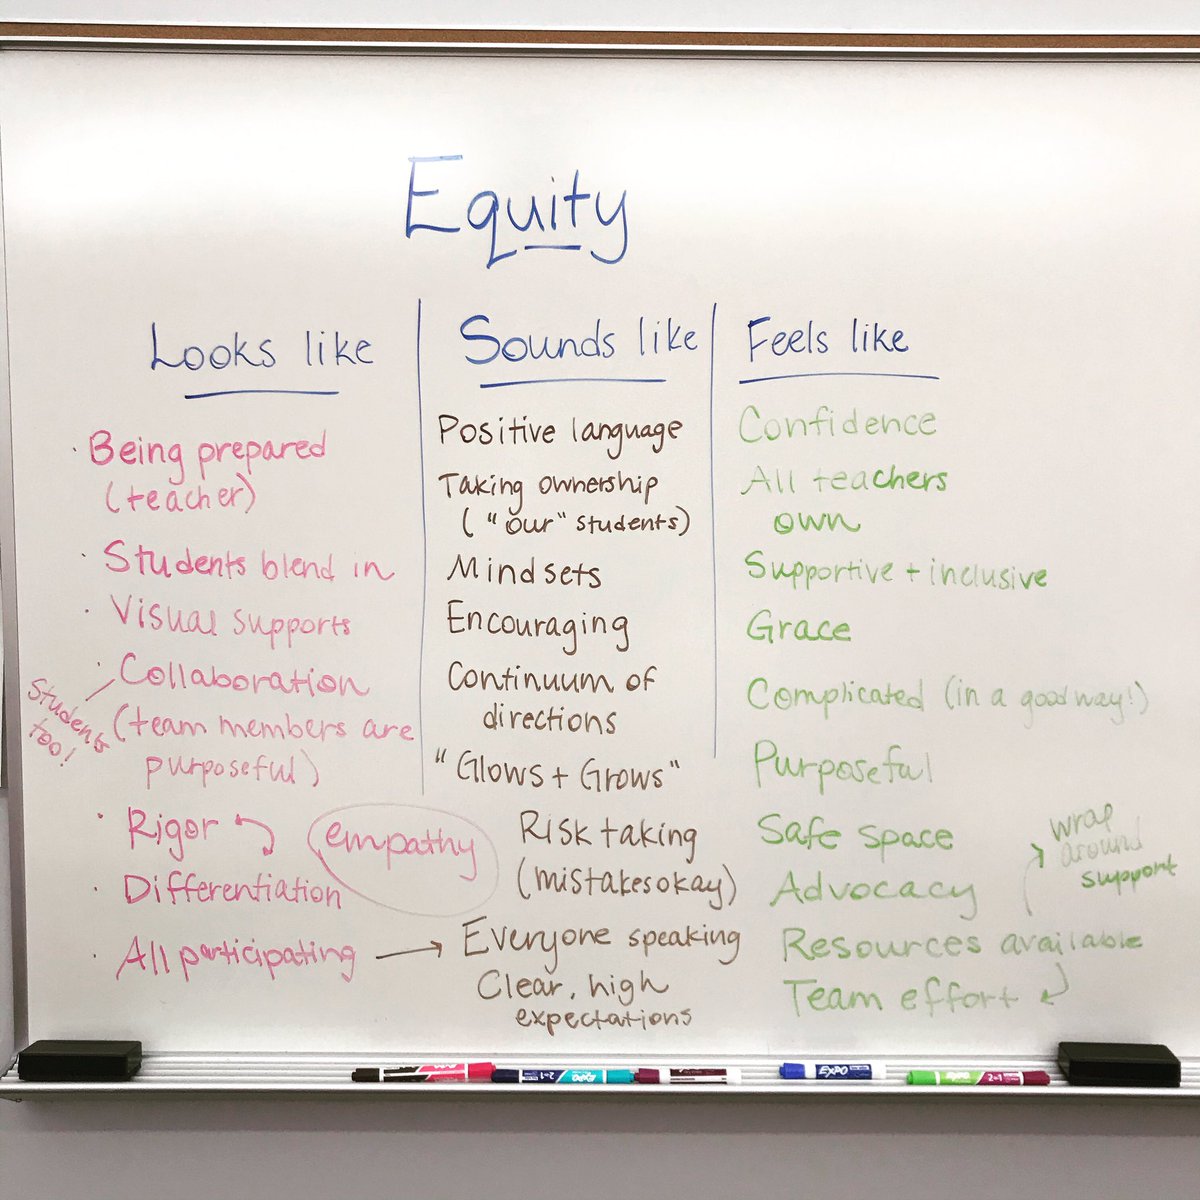 Equity
Looks like
· Being prepared
(teacher)
· Students blend in
· Visual supports
· Collaboration
Students
too!
(team members are
purposeful)
· Rigor
· Differentiation
· All participating
empathy
Sounds like
Positive language
Taking ownership
("our" students)
Mindsets
Encouraging
Continuum of
directions
"Glows + Grows"
Risk taking
(mistakes okay)
Everyone speaking
Clear, high
expectations
Feels like
Confidence
All teachers
own
Supportive + inclusive
Grace
Complicated (in a good way!)
Purposeful
Safe space
Advocacy
Resources available
Team effort
wrap
around
support
EXPO
2 in 1